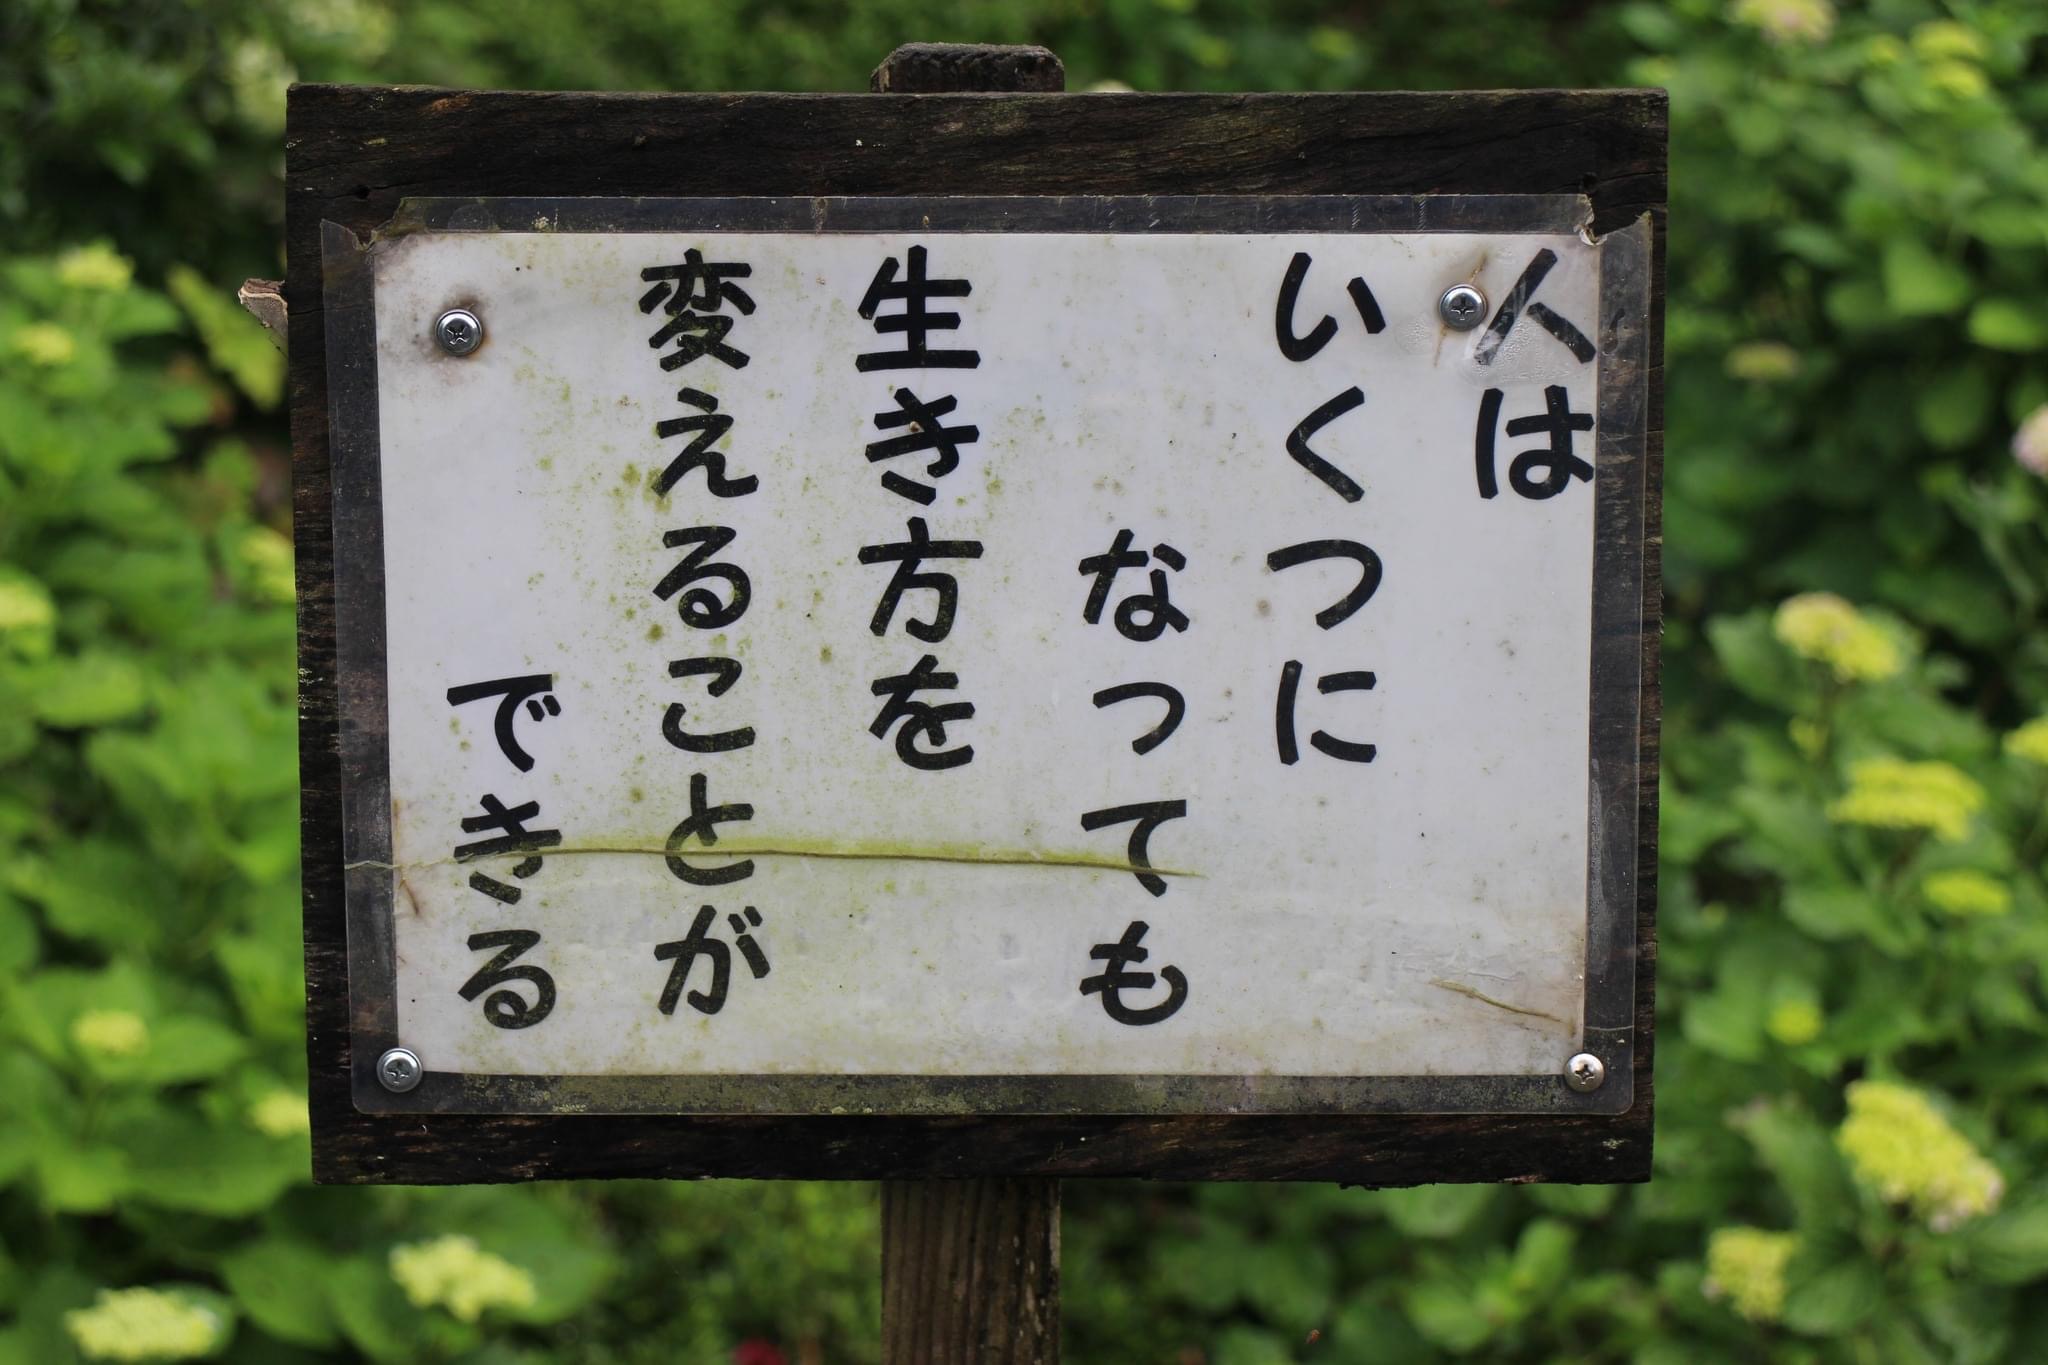 人は
いくつに
なっても
生き方を
変えることが
できる